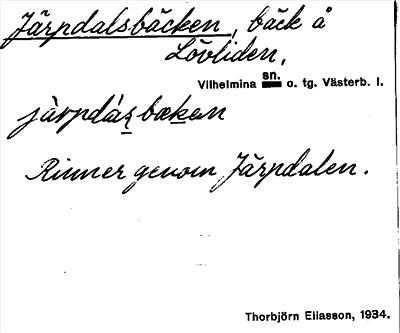 Järpdalsbäcken, bäck å
Lövliden,
Vilhelmina sn. o. tg. Västerb. l.
järpdáʂ bækən
Rinner genom Järpdalen.
Thorbjörn Eliasson, 1934.